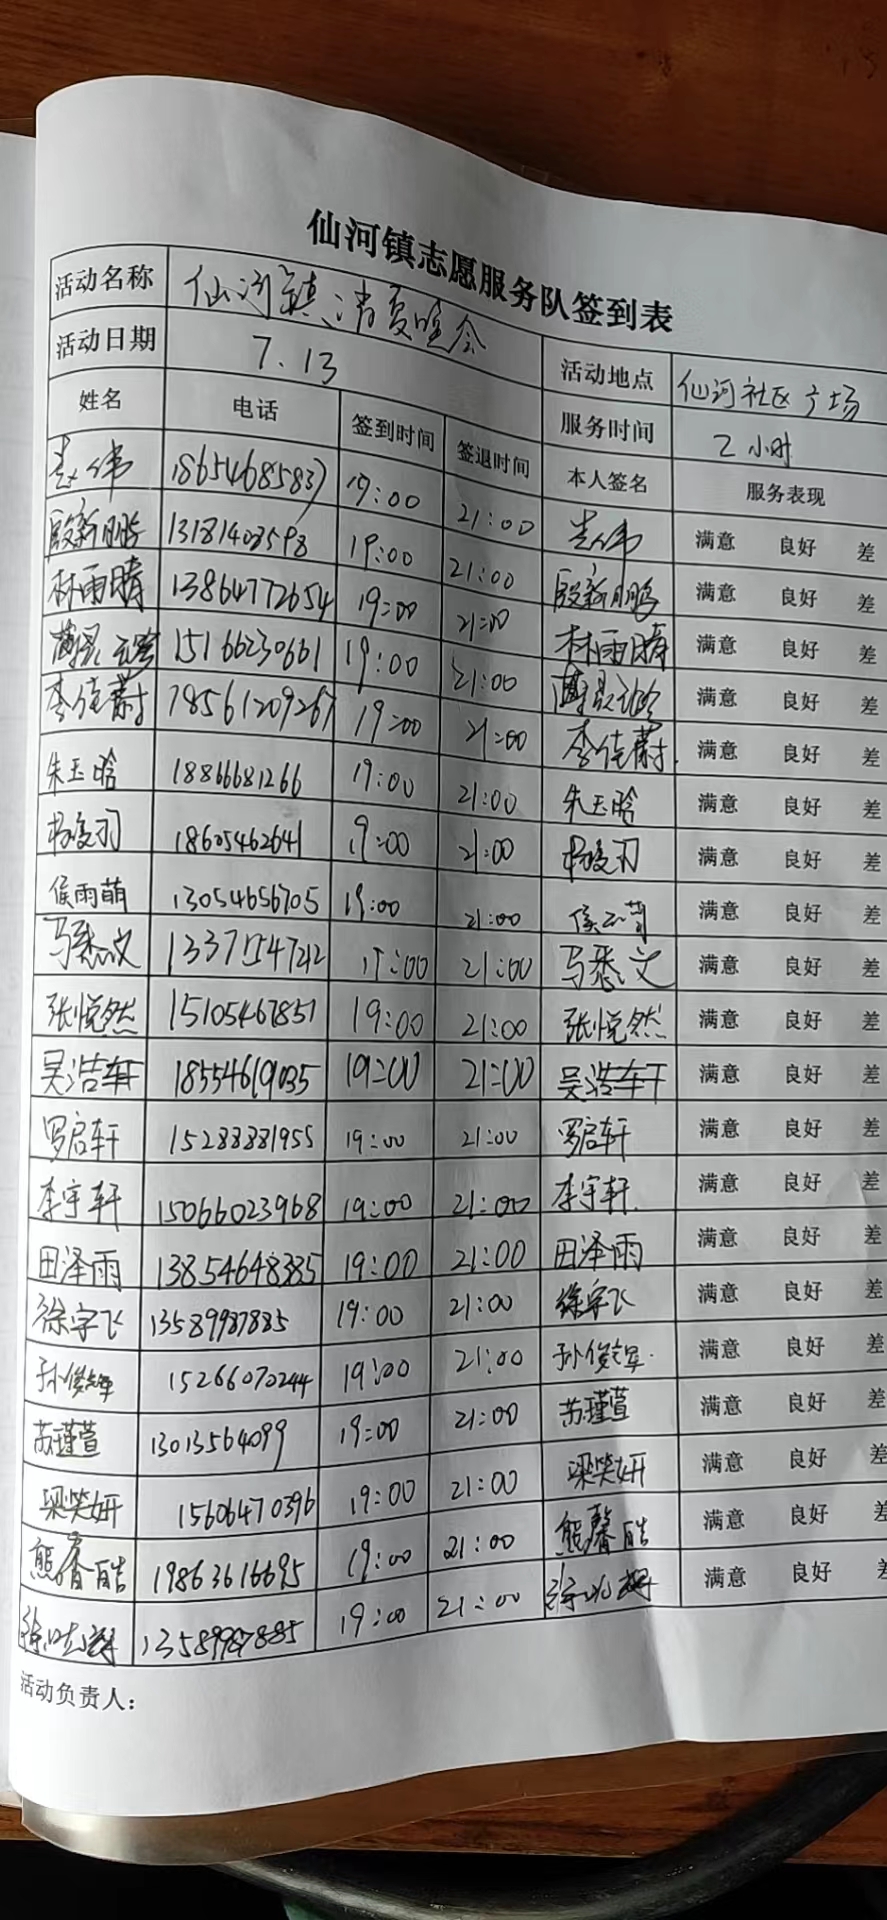 仙河镇志愿服务队签到表
活动名称 仙河镇消夏晚会 活动地点 仙河社区广场
活动日期 7.13 服务时间 2小时
姓名 电话 签到时间 签退时间 本人签名 服务表现
18654685837 19:00 21:00 满意 良好 差
殷新鹏 13181408598 19:00 21:00 殷新鹏 满意 良好 差
林雨晴 13864772654 19:00 21:00 林雨晴 满意 良好 差
15166230661 19:00 21:00 满意 良好 差
李佳蔚 18561209267 19:00 21:00 李佳蔚 满意 良好 差
朱玉晗 18866681266 19:00 21:00 朱玉晗 满意 良好 差
18605462641 19:00 21:00 满意 良好 差
侯雨萌 13054656705 19:00 21:00 侯雨萌 满意 良好 差
19:00 21:00 满意 良好 差
张悦然 15105467851 19:00 21:00 张悦然 满意 良好 差
吴浩轩 18554619035 19:00 21:00 吴浩轩 满意 良好 差
罗启轩 15288881955 19:00 21:00 罗启轩 满意 良好 差
李宇轩 15066023968 19:00 21:00 李宇轩 满意 良好 差
田泽雨 13854648385 19:00 21:00 田泽雨 满意 良好 差
徐宇飞 13589987885 19:00 21:00 徐宇飞 满意 良好 差
15266070244 19:00 21:00 满意 良好 差
苏瑾萱 13013564099 19:00 21:00 苏瑾萱 满意 良好 差
梁笑妍 15606470396 19:00 21:00 梁笑妍 满意 良好 差
熊馨皓 19863616695 19:00 21:00 熊馨皓 满意 良好 差
13589987885 19:00 21:00
活动负责人：